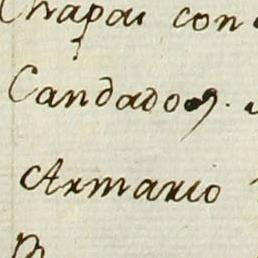 Chapas con
Candados.
Armario